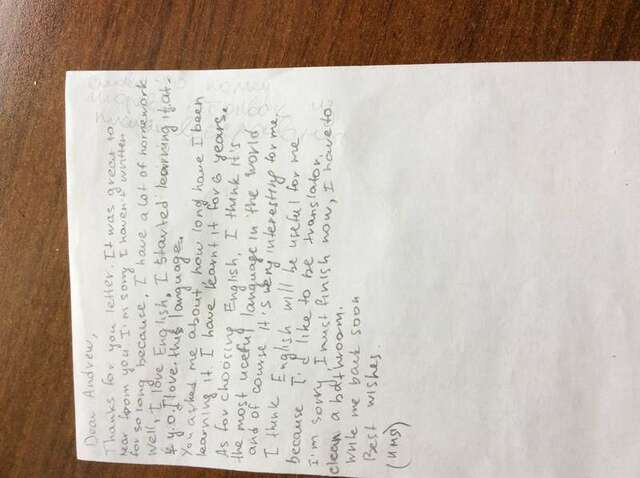 Dear Andrew,
Thanks for you letter. It was great to
hear from you I'm sorry I haven't written
for so long because, I have a lot of homework
Well, I love English, I started learning it at
y.o. I love this language.
You asked me about how long have I been
learning it I have learnt it for 6 years.
As for choosing English, I think it's
the most useful language in the world
and of course it's very interesting for me.
I think English will be useful for me
because I'd like to be translator.
I'm sorry I must finish now, I have to
clean a bathroom.
write me back soon
Best wishes.